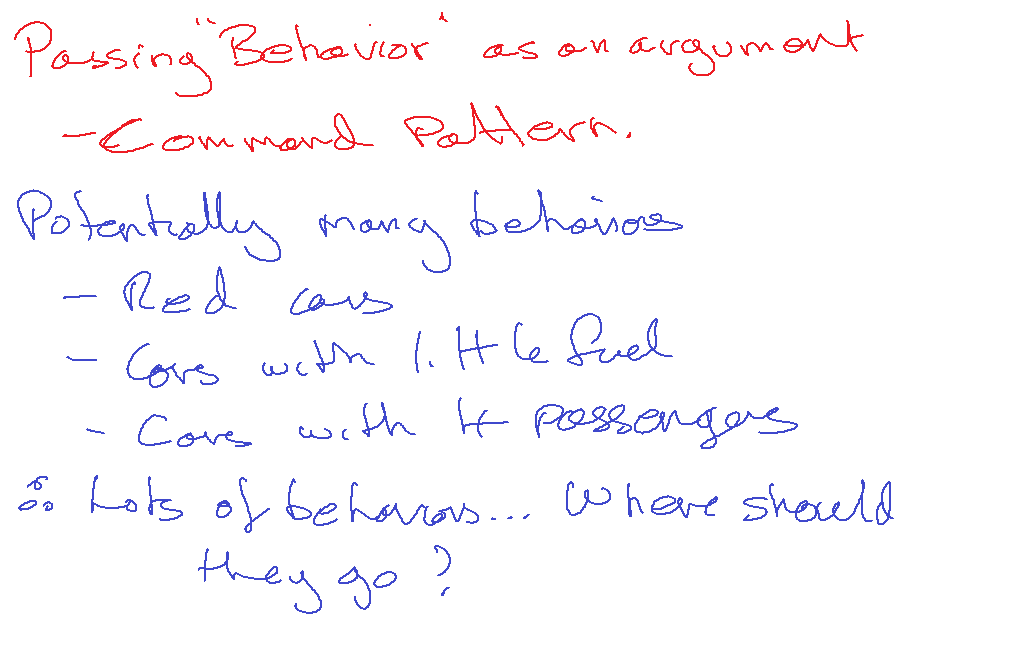 Passing "Behavior" as an argument
- Command Pattern.
Potentially many behaviors
- Red cars
- Cars with little fuel
- Cars with 4 passengers
∴ Lots of behaviors... Where should
they go?